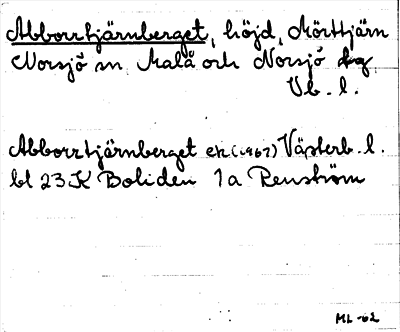 Abborrtjärnberget, höjd, Mörttjärn
Norsjö sn, Malå och Norsjö
Vb. l.
Abborrtjärnberget ek (1967) Västerb. l.
bl 23 K Boliden 1a Renström
ML -62